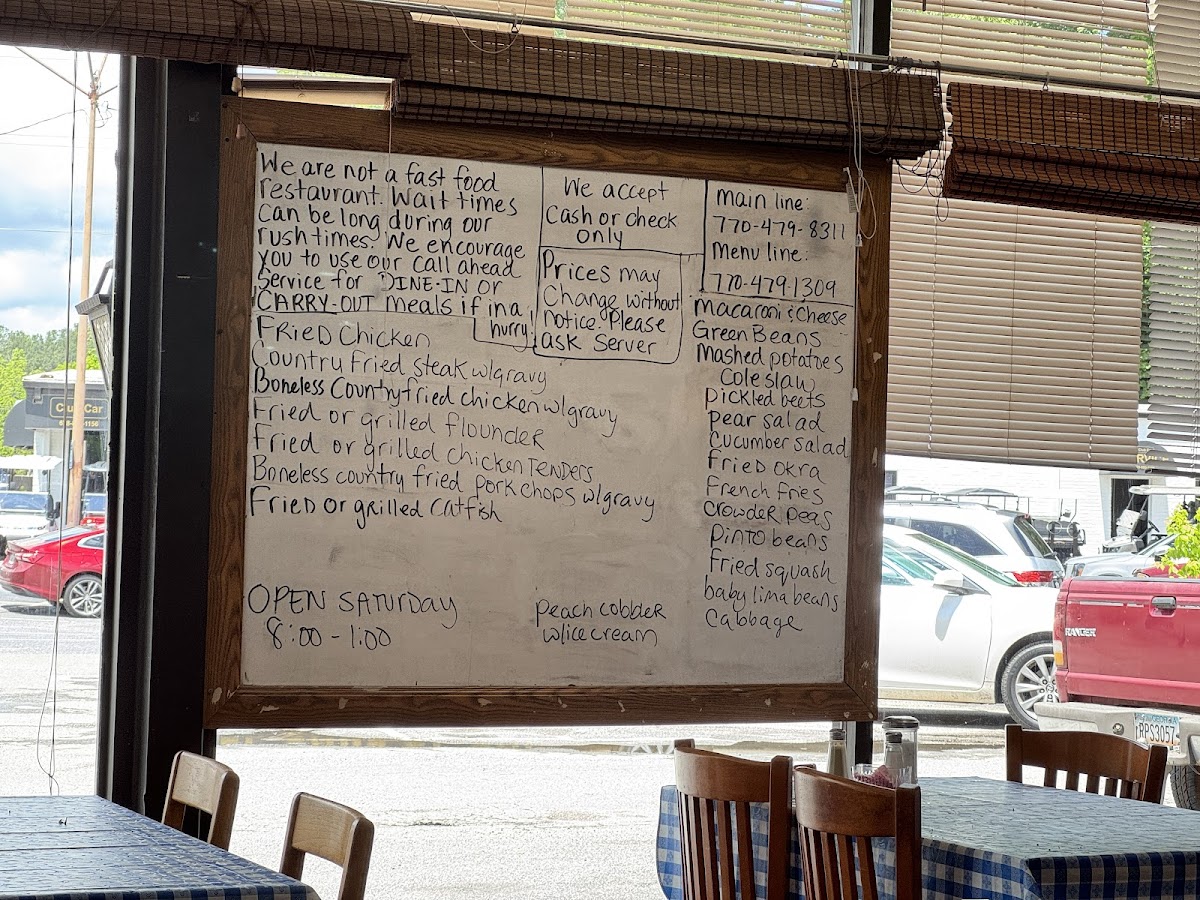 We are not a fast food
restaurant. Wait times
can be long during our
rush times. We encourage
you to use our call ahead
service for DINE-IN or
CARRY-OUT meals if in a
hurry!
We accept
Cash or check
only
Prices may
Change without
notice. Please
ask server
Main line:
770-479-8311
Menu line:
770-479-1309
Fried Chicken
Country Fried Steak w/gravy
Boneless Countryfried chicken w/gravy
Fried or grilled flounder
Fried or grilled chicken Tenders
Boneless country fried pork chops w/gravy
Fried or grilled Catfish
Macaroni & Cheese
Green Beans
Mashed potatoes
Coleslaw
Pickled beets
pear salad
Cucumber salad
Fried okra
French fries
Crowder peas
Pinto beans
Fried squash
baby lima beans
Cabbage
OPEN SATURDAY
8:00 - 1:00
Peach cobbler
w/ice cream
Club Car
RANGER
RPS3057